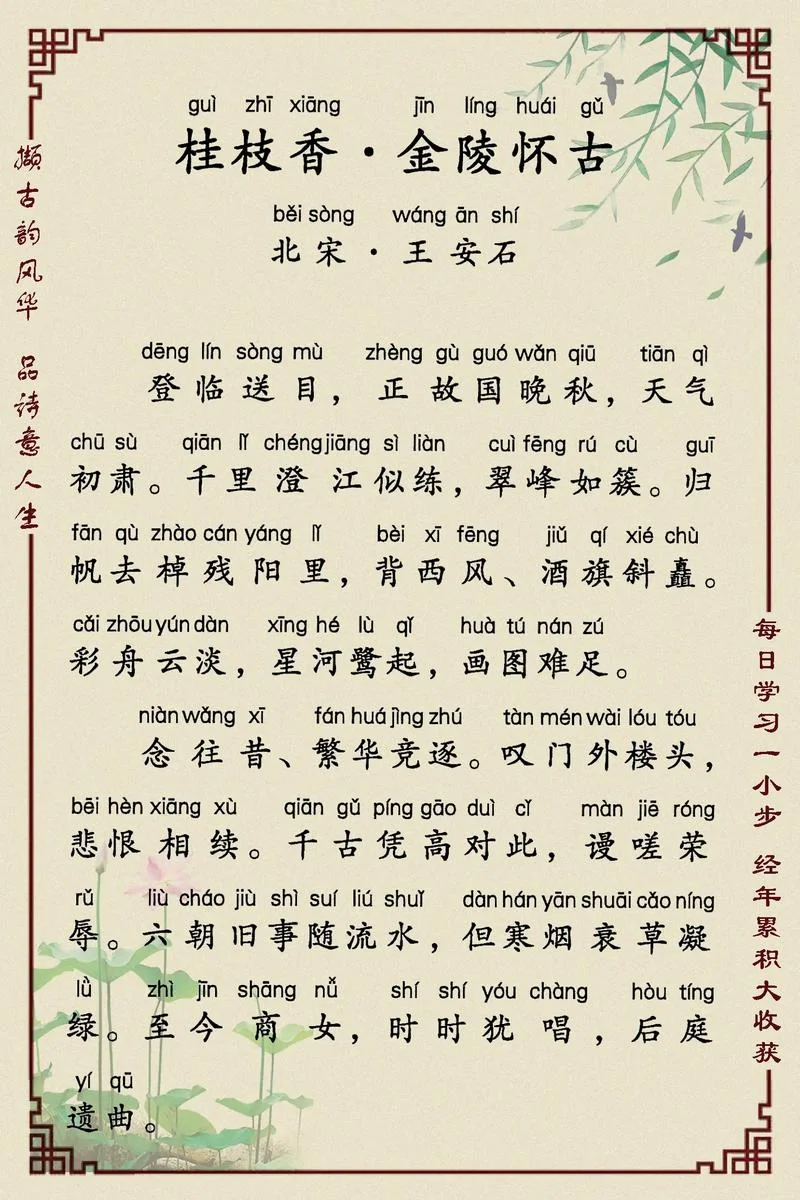 guì zhī xiāng jīn líng huái gǔ
桂枝香·金陵怀古
běi sòng wáng ān shí
北宋·王安石
dēng lín sòng mù zhèng gù guó wǎn qiū tiān qì
登临送目，正故国晚秋，天气
chū sù qiān lǐ chéng jiāng sì liàn cuì fēng rú cù guī
初肃。千里澄江似练，翠峰如簇。归
fān qù zhào cán yáng lǐ bèi xī fēng jiǔ qí xié chù
帆去棹残阳里，背西风、酒旗斜矗。
cǎi zhōu yún dàn xīng hé lù qǐ huà tú nán zú
彩舟云淡，星河鹭起，画图难足。
niàn wǎng xī fán huá jìng zhú tàn mén wài lóu tóu
念往昔、繁华竞逐。叹门外楼头，
bēi hèn xiāng xù qiān gǔ píng gāo duì cǐ màn jiē róng
悲恨相续。千古凭高对此，谩嗟荣
rǔ liù cháo jiù shì suí liú shuǐ dàn hán yān shuāi cǎo níng
辱。六朝旧事随流水，但寒烟衰草凝
lǜ zhì jīn shāng nǚ shí shí yóu chàng hòu tíng
绿。至今商女，时时犹唱，后庭
yí qū
遗曲。
撷古韵风华 品诗意人生
每日学习一小步 经年累积大收获